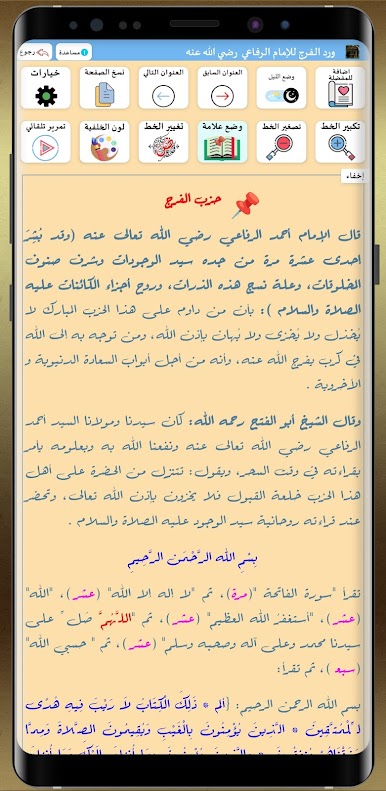 ورد الفرج للإمام الرفاعي رضي الله عنه
مساعدة
رجوع
اضافة للمفضلة
وضع الليل
العنوان السابق
العنوان التالي
نسخ الصفحة
خيارات
تكبير الخط
تصغير الخط
وضع علامة
تغيير الخط
لون الخلفية
تمرير تلقائي
إخفاء
حزب الفرج
قال الإمام أحمد الرفاعي رضي الله تعالى عنه (وقد بُشِّرَ
إحدى عشرة مرة من جده سيد الوجودات وشرف صنوف
المخلوقات، وعلة نسج هذه الذرات، وروح أجزاء الكائنات عليه
الصلاة والسلام ): بأن من داوم على هذا الحزب المبارك لا
يُخذل ولا يُخزى ولا يُهان بإذن الله، ومن توجه به إلى الله
في كرب يفرج الله عنه، وأنه من أجل أبواب السعادة الدنيوية و
الأخروية .
وقال الشيخ أبو الفتح رحمه الله: كان سيدنا ومولانا السيد أحمد
الرفاعي رضي الله تعالى عنه ونفعنا الله به وبعلومه يأمر
بقراءته في وقت السحر، ويقول: تتنزل من الحضرة على أهل
هذا الحزب خلعة القبول فلا يخزون بإذن الله تعالى، وتحضر
عند قراءته روحانية سيد الوجود عليه الصلاة والسلام .
بِسْمِ اللهِ الرَّحْمَنِ الرَّحِيمِ
تقرأ "سورة الفاتحة "(مرة)، ثم "لا اله إلا الله" (عشر)، "الله"
(عشر)، "أستغفرُ الله العظيم" (عشر)، ثم "اللَّهُمَّ صَل ِّ على
سيدنا محمد وعلى آله وصحبه وسلم" (عشر)، ثم " حسبي الله"
(سبع )، ثم تقرأ:
بسم الله الرحمن الرحيم: {الم * ذَلِكَ الْكِتَابُ لَا رَيْبَ فِيهِ هُدًى
لِّلْمُتَّقِينَ * الَّذِينَ يُؤْمِنُونَ بِالْغَيْبِ وَيُقِيمُونَ الصَّلَاةَ وَمِمَّا